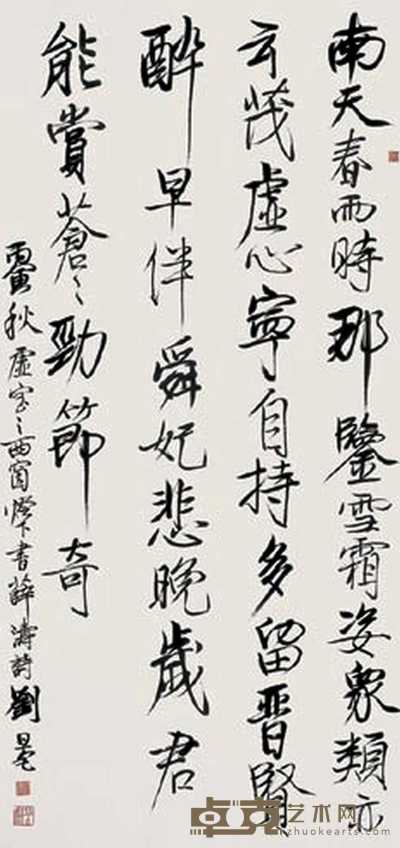 南天春雨時那鑒雪霜姿衆類亦
云茂虛心寧自持多留晉賢
醉早伴舜妃悲晚歲君
能賞蒼〻勁節奇
秋虛室之西窗燈下書薛濤詩劉
卓克艺术网
zhuokearts.com